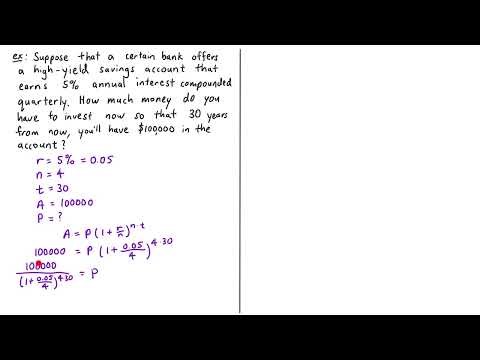 ex: Suppose that a certain bank offers
a high-yield savings account that
earns 5% annual interest compounded
quarterly. How much money do you
have to invest now so that 30 years
from now, you'll have $100,000 in the
account?
r = 5% = 0.05
n = 4
t = 30
A = 100000
P = ?
A = P(1+r/n)^n·t
100000 = P(1+0.05/4)^4·30
100000/(1+0.05/4)^4·30 = P